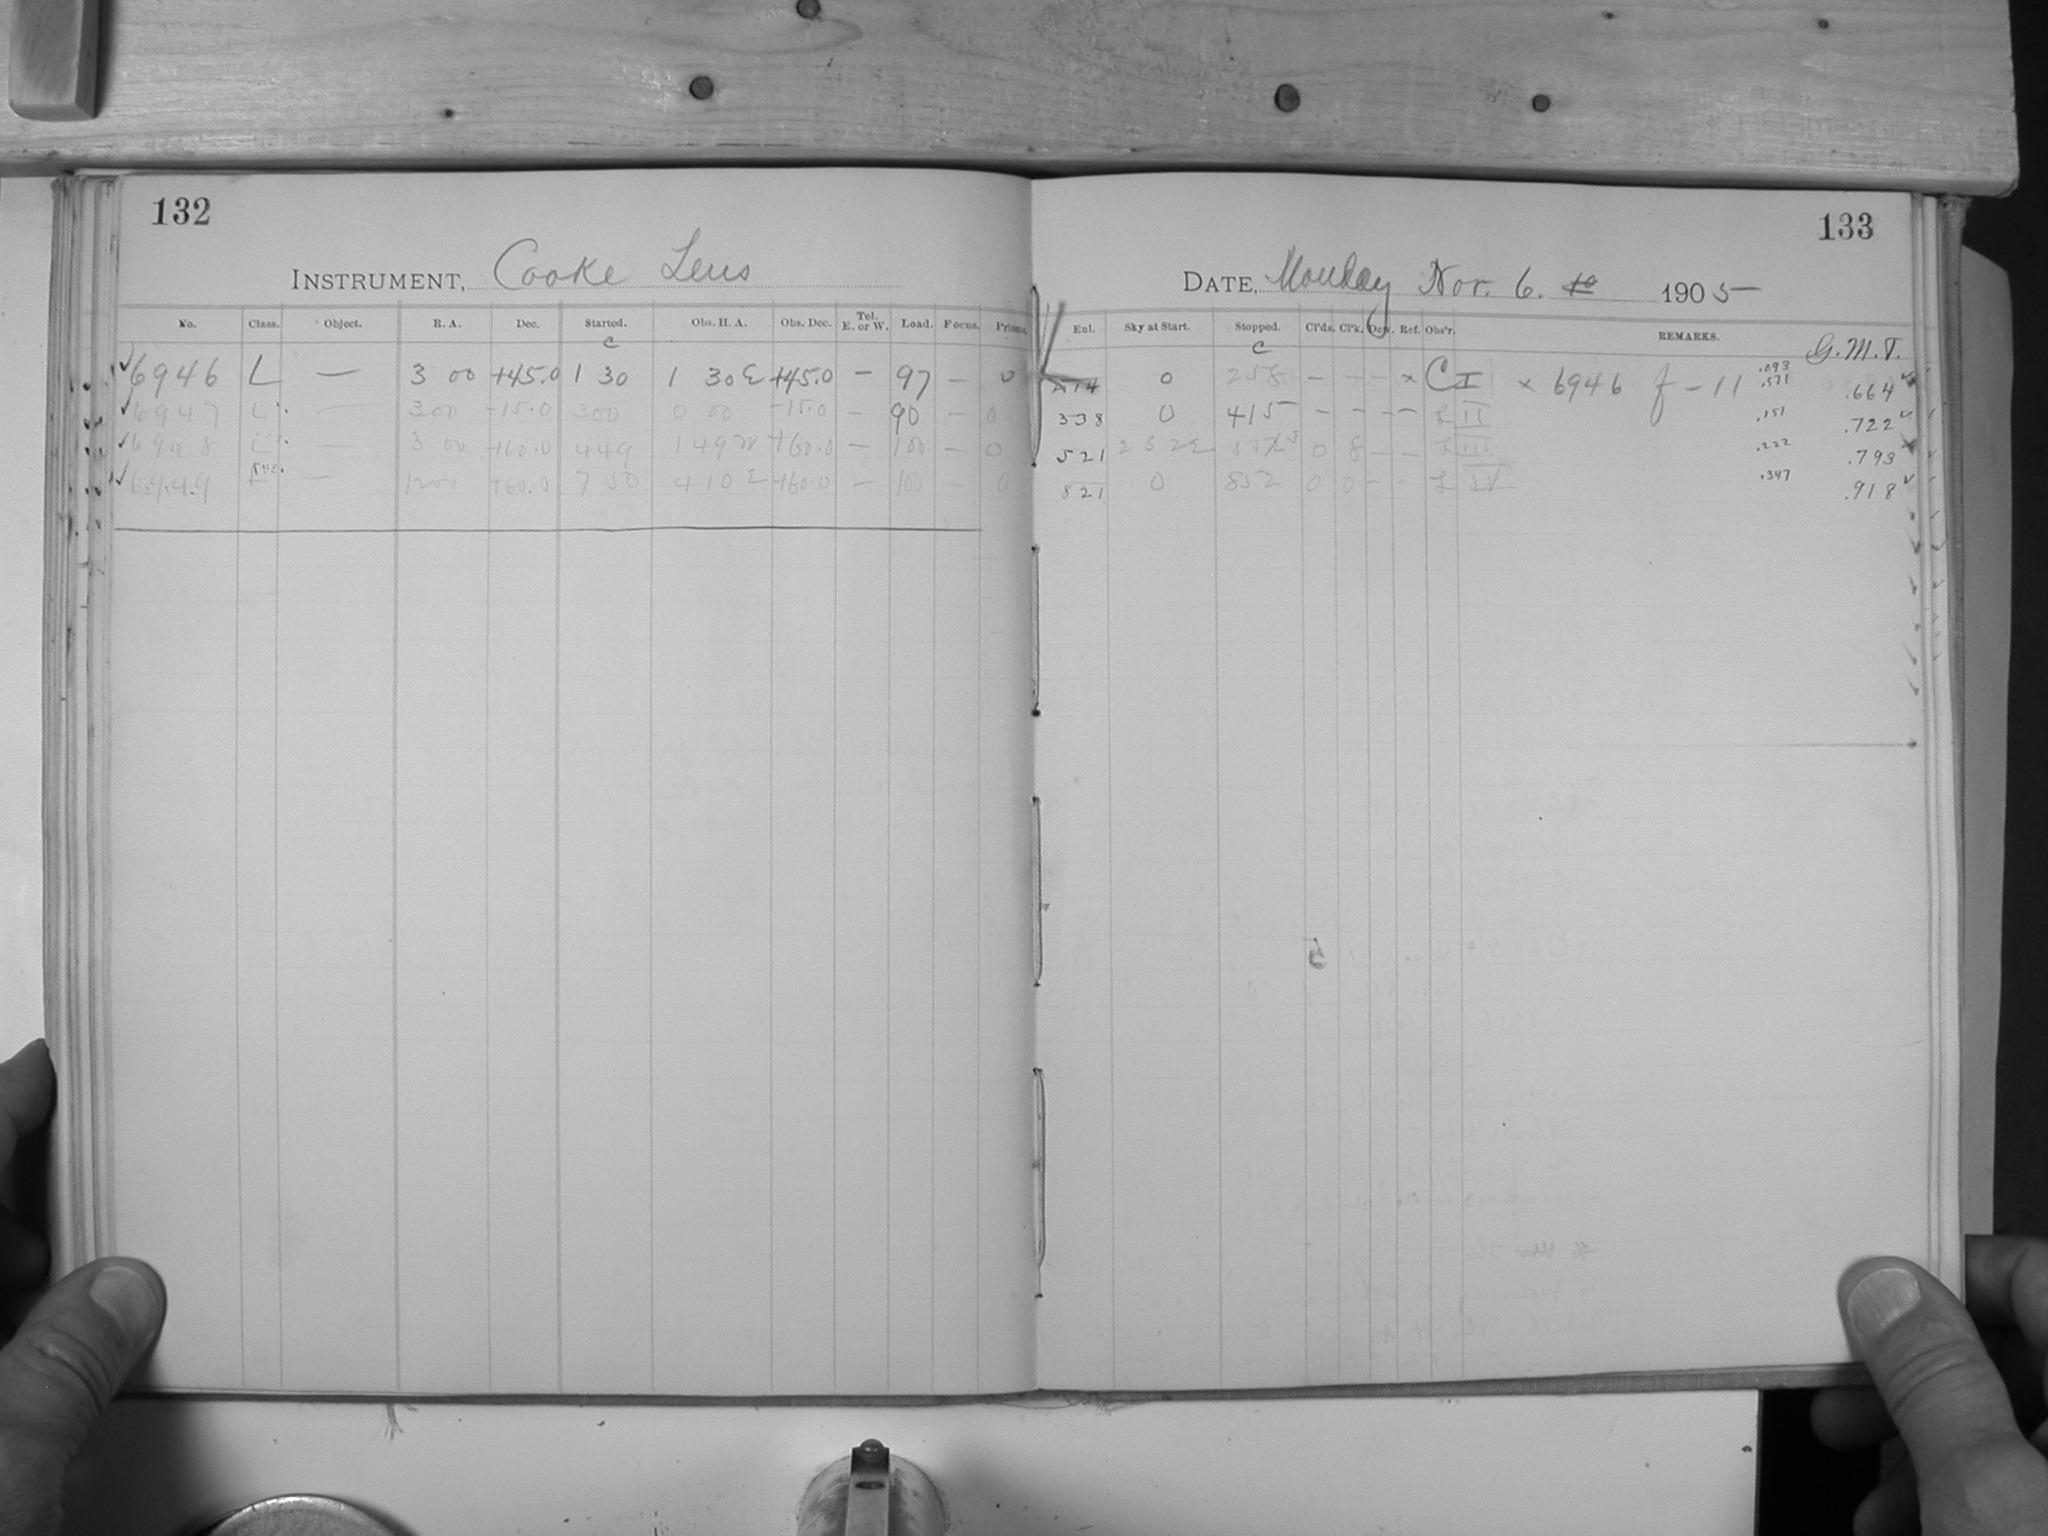 132
INSTRUMENT, Cooke Lens
No. Class. Object. R. A. Dec. Started. Obs. H. A. Obs. Dec. Tel. E. or W. Load. Focus. Prisms.
c
6946 L — 3 00 +45.0 1 30 1 30 E +45.0 — 97 — 0
6947 L — 3 00 -15.0 3 00 0 00 -15.0 — 90 — 0
6948 L — 3 00 +60.0 4 49 1 49 W +60.0 — 100 — 0
6949 — 12 00 +60.0 7 50 4 10 E +60.0 — 100 — 0
133
DATE, Monday Nov. 6. 1905
Eal. Sky at Start. Stopped. Cl'ds. Cl'k. Dew. Ref. Obs'r. REMARKS.
c G. M. T.
214 0 258 — — — × C I × 6946 f - 11 .093 .571 .664
338 0 415 — — — — L II .151 .722
521 2 52 E 0 8 — — L III .222 .793
821 0 852 0 0 — — L IV .347 .918